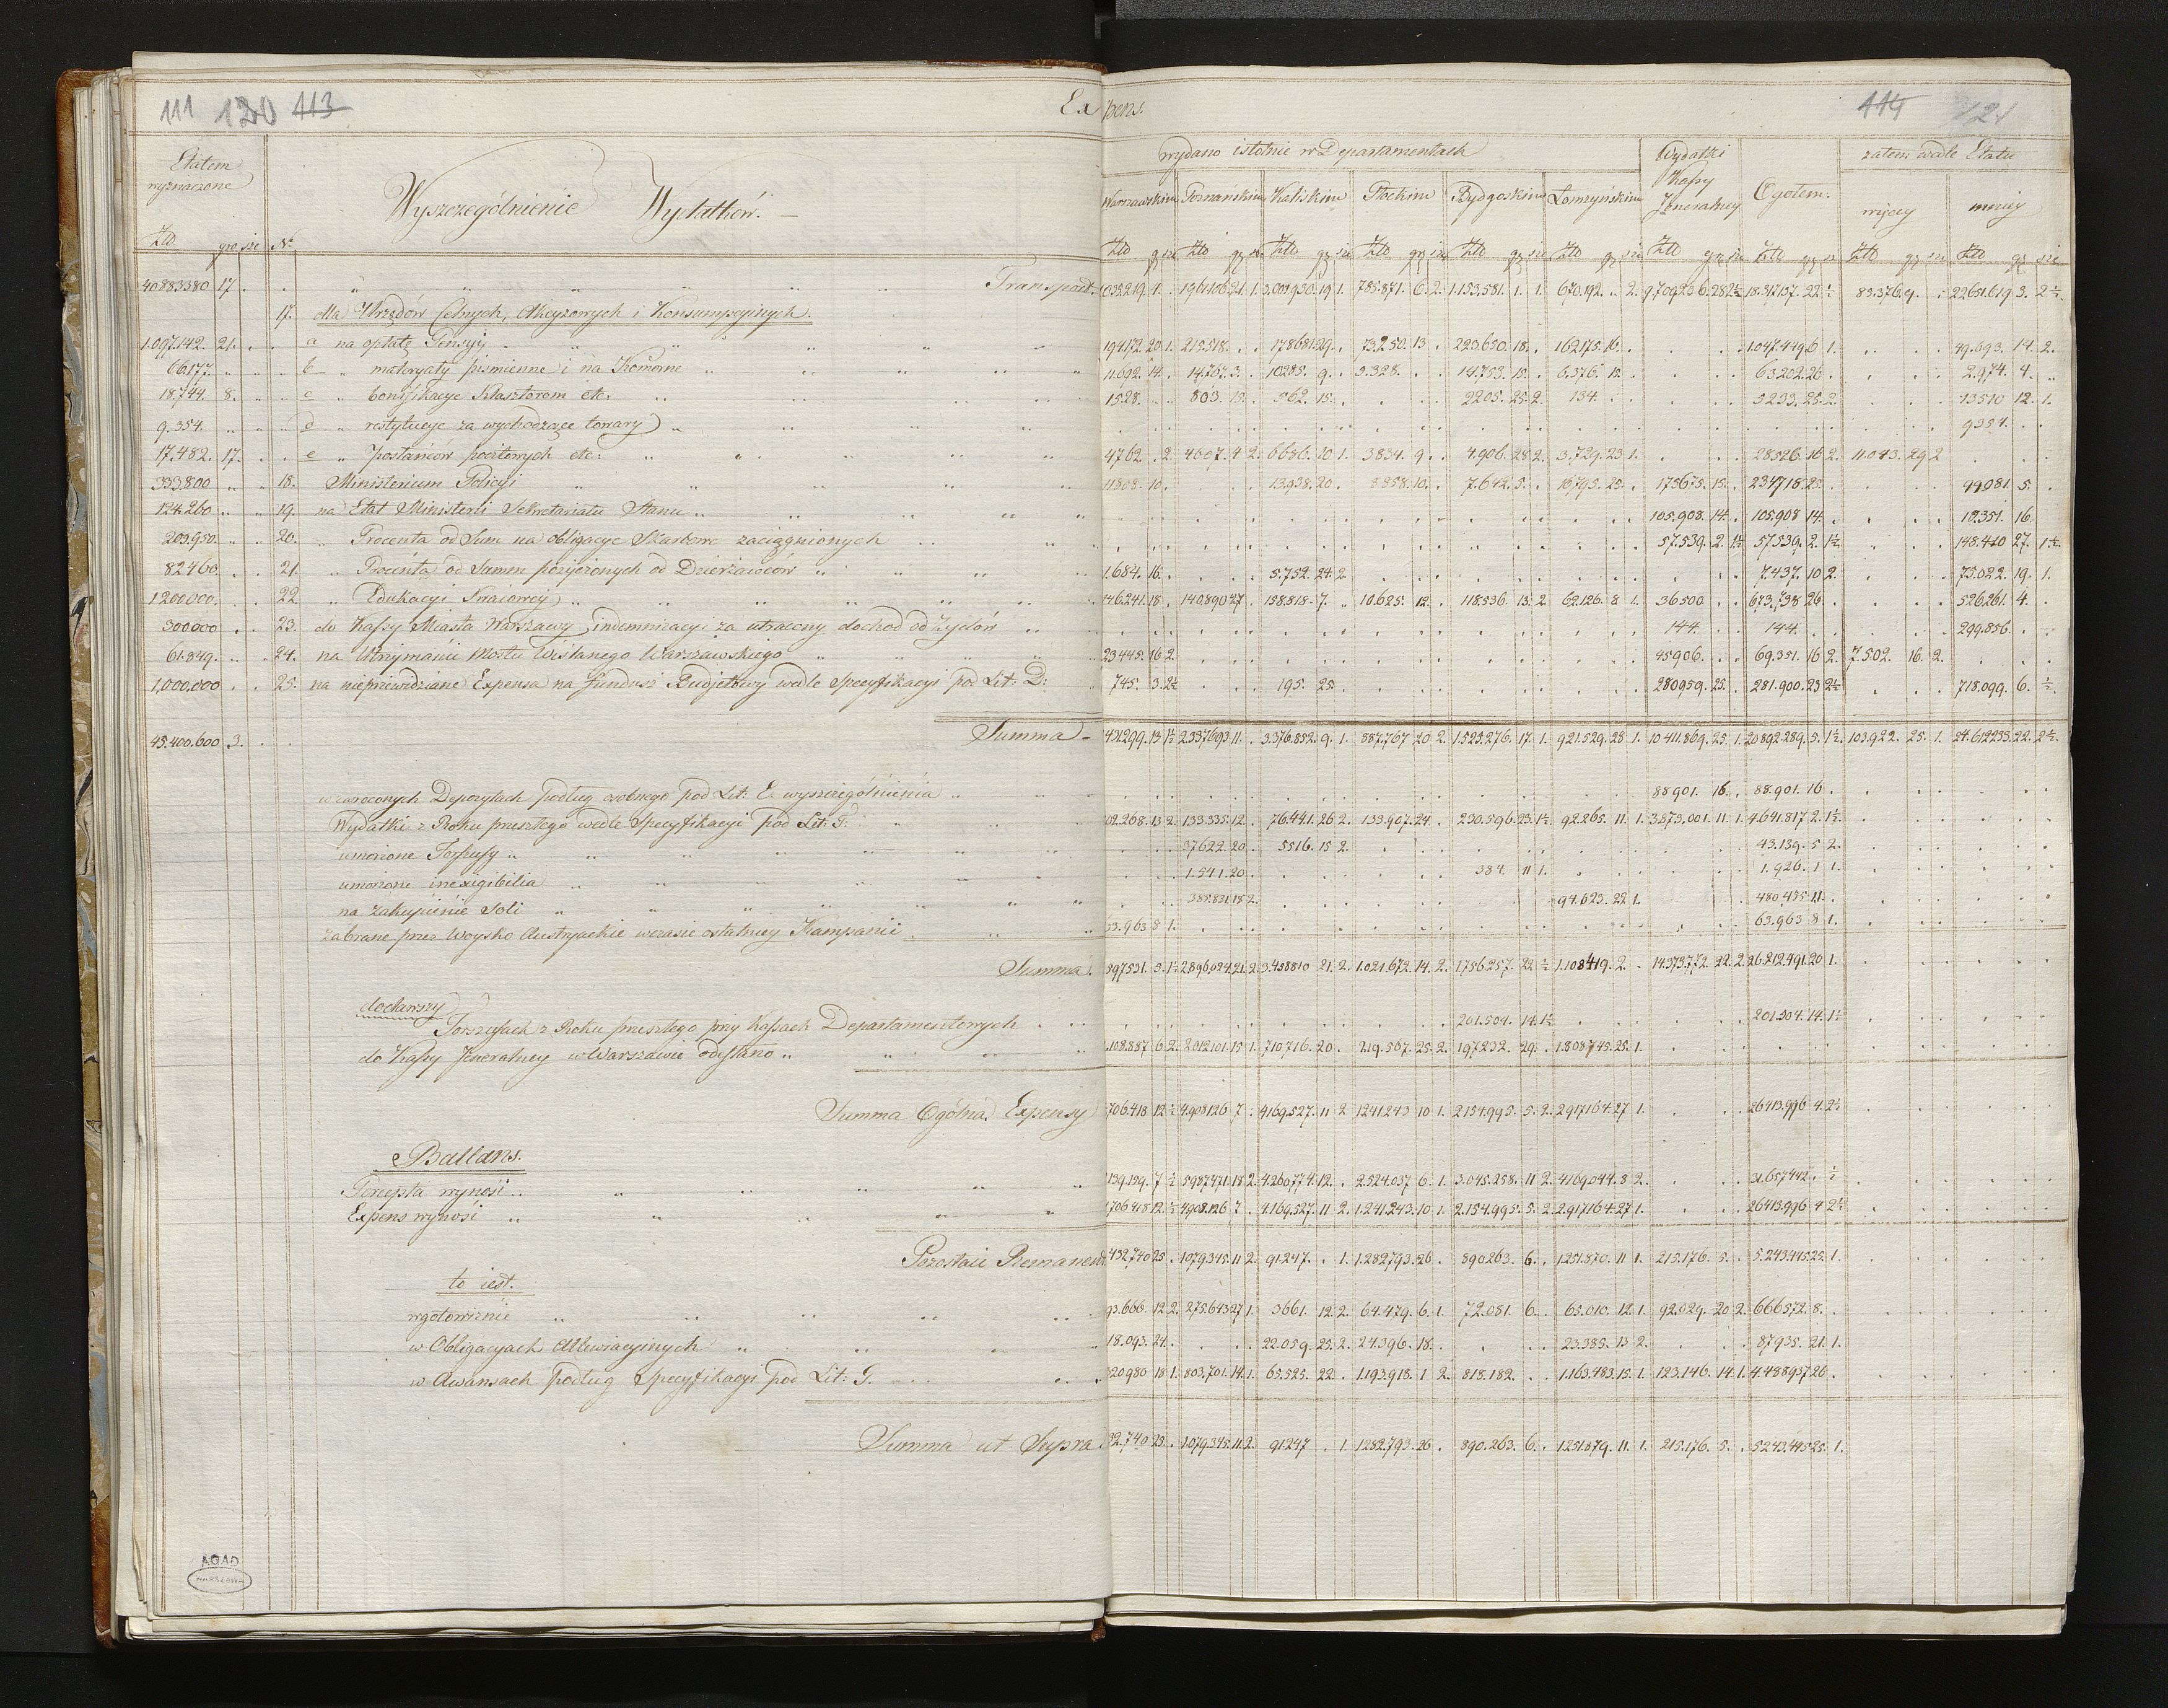 111 120 113
Expens.
114 121
Etatem wyznaczone
Wyszczególnienie Wydatków.
wydano istotnie w Departamentach
Wydatki Kassy Jeneralney
Ogołem.
zatem wedle Etatu
Warszawskim Poznańskim Kaliskim Płockim Bydgoskim Łomżyńskim
więcey mniey
Złd grosze No
Złd gr sze Złd gr sze Złd gr sze Złd gr sze Złd gr sze Złd gr sze Złd gr sze Złd gr sze Złd gr sze Złd gr sze
40883380 17 . Transport. 1.961.106 21. 1. 3.001.930. 19 1. 785.871. 6. 2. 1.153.581. 1. 1. 670.192. .. 2. 83.376. 9. 22.651.619 3. 2½.
17. dla Urzędów Celnych, Akcyzowych i Konsumpcyinych.
1.097.142. 21. a na opłatę Pensyj 194172. 20 1. 215.518. . . 178681. 29. . 73.250. 13 . 223.650. 18. . 162175. 16. . 1.047.449. 6 1. 49.693. 14. 2.
66177. b " materyały pismienne i na Komorne 11.692. 14. . 14.767. 3. . 10285. 9. . 5.328. . . 14.753. 15. . 6.376. 12. . 63202. 26. 2.974. 4. ..
18.744. 8. c " bonifikacye Klasztorom etc: 1528. . . 803. 15. . 562. 15. . 2205. 25 2. 134. . . 5233. 25. 2. 13510 12. 1.
9.354. d " restytucye za wychodzące towary 9354. . .
17.482. 17. e " Posłańców pocztowych etc: 4762. . 2. 4607. 4 2. 6686. 10 1. 3834. 9 . . 4.906. 28 2. 3.729. 23 1. 28526. 16 2. 11.043. 29 2
333.800 18. Ministerium Policyi 11808. 10. . 13.938. 20. . 8.958. 10. . 7.642. 5. . 16.795. 25. . 175675. 15. . 234718. 25. 99.081. 5.
124.260 19. na Etat Ministerii Sekretariatu Stanu 105.908. 14. . 105.908 14. . 18.351. 16.
203.950. 20. " Procenta od Sum na obligacye Skarbowe zaciągnionych 57.539. 2. 1½ 57.539. 2. 1½. 148.410 27. 1½.
82460. 21. " Procenta od Summ pożyczonych od Dzierżawców 1.684. 16. . 5.752. 24. 2. 7.437. 10 2. 75.022. 19. 1.
1200000. 22. " Edukacyi Kraiowey 46.241. 18 . 140.890 27 . 158.818. 7. .. 10.625. 12. . 118.536. 13. 2. 62.126. 8 1. 36500. . . 673.738 26. . 526261. 4. .
300000 23. do Kassy Miasta Warszawy, indemnizacyi za utracony dochod od Żydów 144. . . 144. . . 299.856. . .
61.849. 24. na Utrzymanie Mostu Wiślanego Warszawskiego 23445. 16 2. 45906. . . 69.351. 16 2. 7.502. 16. 2.
1,000,000 25. na nieprzewidziane Expensa na fundusz Budjetowy wedle Specyfikacyi pod Lit: D: 745. 3. 2½ 195. 25. 280959. 25. . 281.900. 23 2½. 718.099. 6. ½.
45.400.600 3. Summa 2.337693 11. . 3.376.852. 9. 1. 887.767 20 2. 1.523.276. 17. 1. 921.529. 28 1. 10411.869. 25. 1. 20892.289. 5. 1½. 103.922. 25. 1. 24.612233. 22. 2½.
w zwroconych Depozytach podług osobnego pod Lit: E. wyszczególnienia 88901. 16. . 88.901. 16 .
Wydatki z Roku przeszłego wedle Specyfikacyi pod Lit: F. 133.335. 12. . 76.441. 26 2. 133.907. 24. . 230.596. 23. 1½. 92.265. 11. 1. 3873,001. 11. 1. 4.641.817 2. 1½.
umorzone Forszusy 37622. 20 . 5516. 15 2. 43.139. 5 2.
umorzone inexigibilia 1.541. 20 . 384. 11 1. 1.926. 1 1.
na zakupienie Soli 385.831. 18 2. 94.623. 22 1. 480,455. 11.
zabrane przez Woysko Austryackie wczasie ostatniey Kampanii 63.963 8 1. 63.963 8 1.
Summa. 2.896,024. 21. 2. 3.458810 21. 2. 1.021.672. 14. 2. 1,756.257. 22. ½ 1.108419. 2. . 14.373.772. 22. 2. 26.212.491. 20 1.
doclawszy
Forszusach z Roku przeszłego przy Kassach Departamentowych 201.504. 14. 1½. 201.504. 14. 1½
do Kassy Jeneralney w Warszawie odesłano 2012101. 15 1. 710716. 20. . 219.567. 25. 2. 197232. 29. . 1.808745. 25. 1.
Summa Ogólna Expensy 706.418 12 ½ 4.908126 7 . 4169.527. 11 2. 1241243 10 1. 2154.995. 5. 2. 2917164. 27 1. 26413.996 4. 2½
Ballans.
Percepta wynosi 5987471. 18 2. 4.260774. 12. . 2.524.037 6. 1. 3.045.258. 11 2. 4169044. 8 2. 31.657442. . ½
Expens wynosi 706418 12. ½ 4908.126 7 . 4.169.527. 11 2. 1.241.243. 10 1. 2.154.995. 5. 2. 2.917164. 27 1. 26413.996 4 2½
Pozostaie Remanent 432,740 25 . 1079.345. 11 2. 91.247. . 1. 1.282793. 26 . 890.263. 6. . 1.251.879. 11 1. 215.176. 5. . 5.243.445. 25. 1.
to iest.
wgotowiznie 93.666. 12 2. 275.643 27 1. 3661. 12 2. 64.479. 6. 1. 72.081. 6. . 65.010. 12. 1. 92.029. 20 2. 666572. 8. .
w Obligacyach Allewiacyinych 18.093. 24. . 22.059. 25. 2. 24.396. 18. . 23.385. 13 2. 87935. 21. 1.
w Awansach podług Specyfikacyi pod Lit: G. 320980 18 1. 803,701. 14. 1. 65.525. 22 . 1.193.918. 1 2. 818.182. . . 1.163.483. 15. 1. 123.146. 14. 1. 4.488937 26 .
Summa ut Supra 32.740 25. . 1079345. 11. 2. 91247 . 1. 1282.793. 26 . 890.263. 6. . 1251.879. 11. 1. 215.176. 5. . 5243.445 25. 1.
AGAD
WARSZAWA